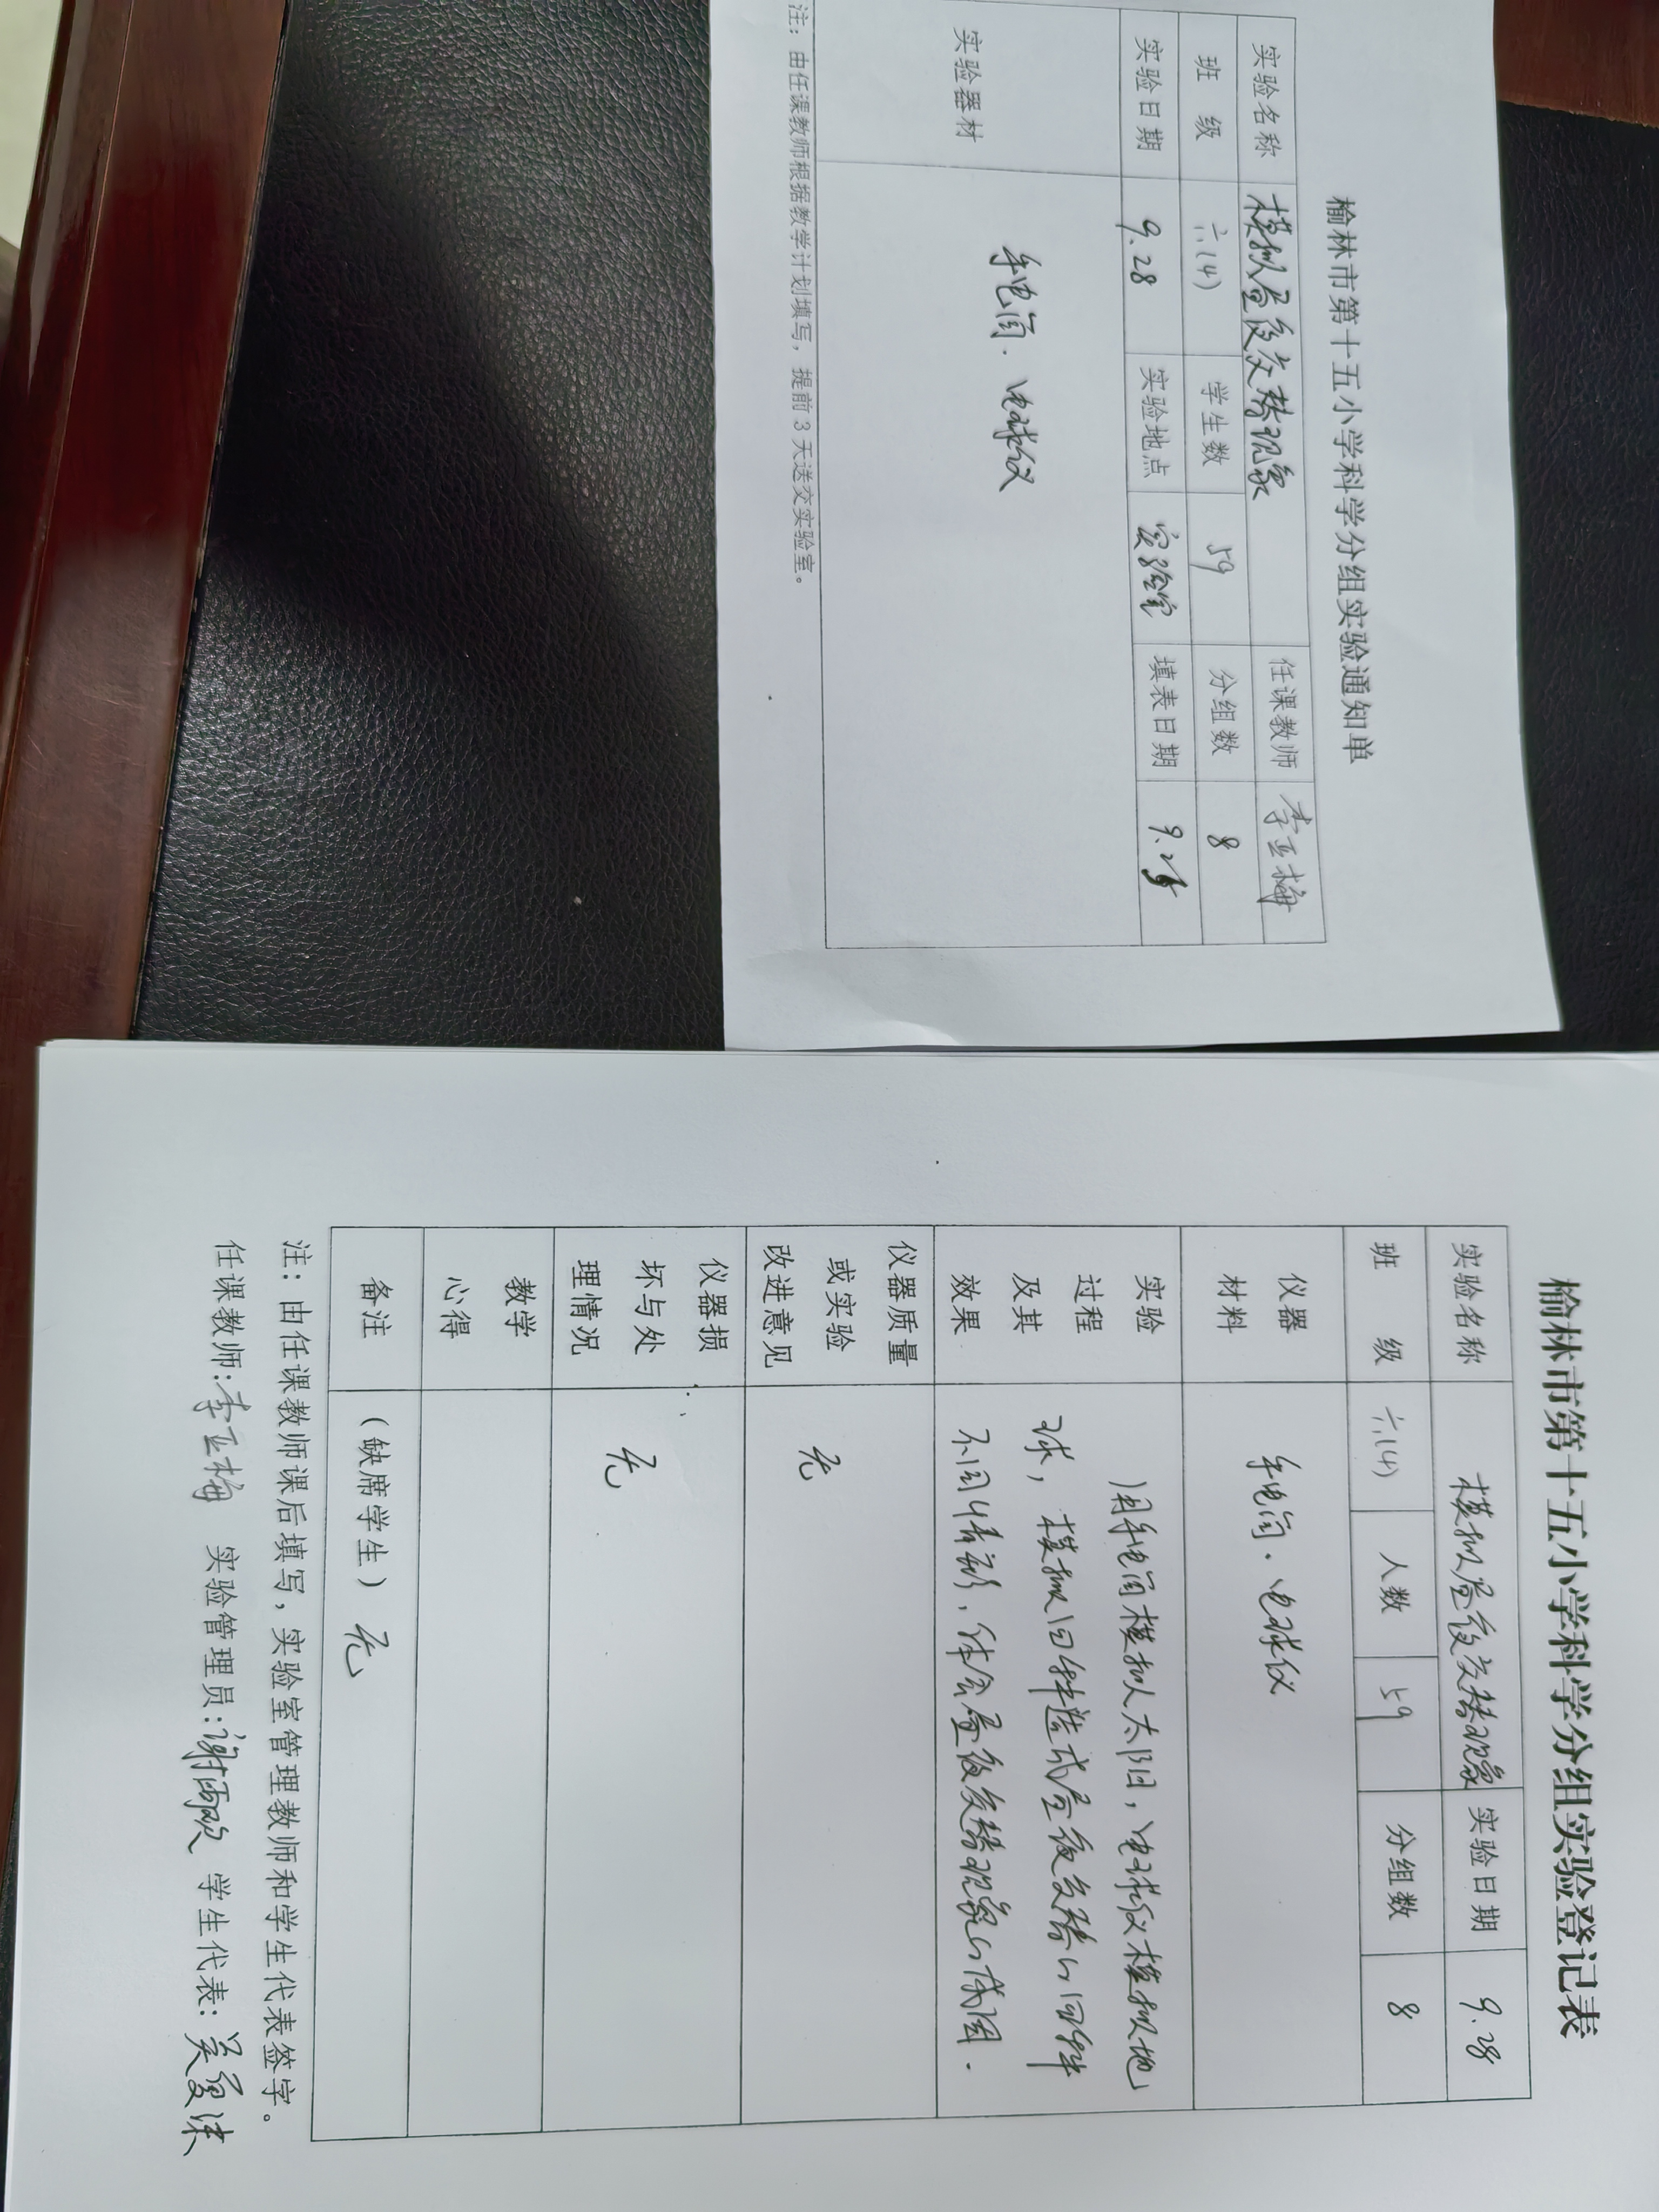 榆林市第十五小学科学分组实验通知单
实验名称 模拟昼夜交替现象 任课教师 李亚梅
班 级 六(4) 学生数 59 分组数 8
实验日期 9.28 实验地点 实验室 填表日期 9.25
实验器材 手电筒、地球仪
注：由任课教师根据教学计划填写，提前3天送交实验室。
榆林市第十五小学科学分组实验登记表
实验名称 模拟昼夜交替现象 实验日期 9.28
班 级 六(4) 人数 59 分组数 8
仪器
材料
手电筒、地球仪
实验
过程
及其
效果
用手电筒模拟太阳，地球仪模拟地
球，模拟各种造成昼夜交替的各种
不同情形，体会昼夜交替现象的成因.
仪器质量
或实验
改进意见
无
仪器损
坏与处
理情况
无
教学
心得
备注 （缺席学生） 无
注：由任课教师课后填写，实验室管理教师和学生代表签字。
任课教师:李亚梅 实验管理员:谢雨 学生代表: 吴